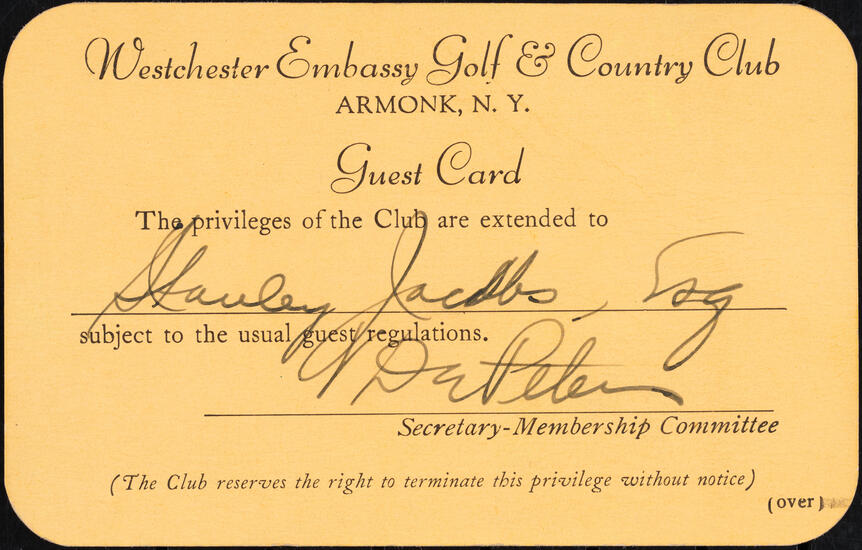 Westchester Embassy Golf & Country Club
ARMONK, N. Y.
Guest Card
The privileges of the Club are extended to
Stanley Jacobs, Esq
subject to the usual guest regulations.
Peters
Secretary-Membership Committee
(The Club reserves the right to terminate this privilege without notice)
(over)